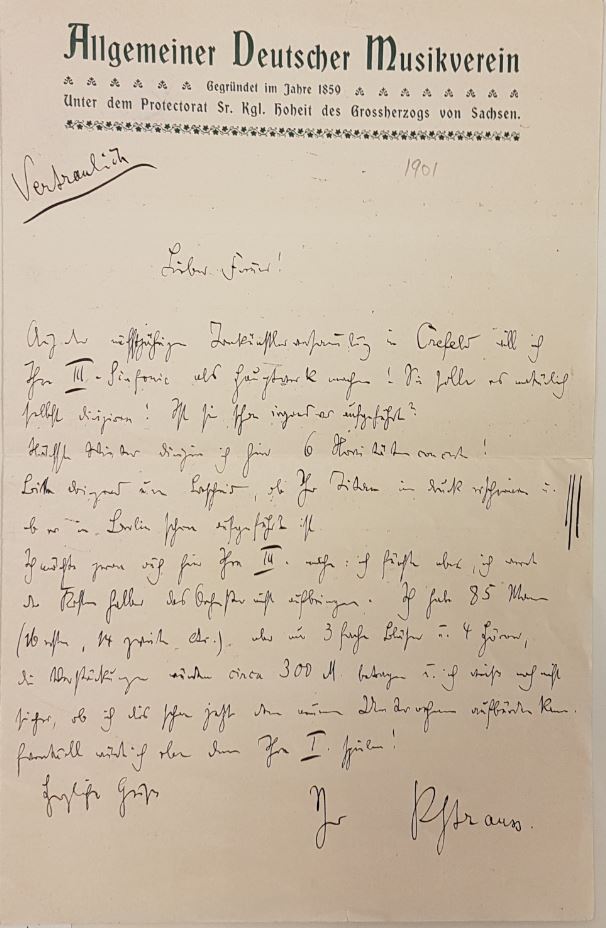 Allgemeiner Deutscher Musikverein
Gegründet im Jahre 1859
Unter dem Protectorat Sr. Kgl. Hoheit des Grossherzogs von Sachsen.
Vertraulich
1901
Lieber Freund!
Auf der nächstjährigen Tonkünstlerversammlung in Crefeld will ich
Ihre III. Sinfonie als Hauptwerk machen! Sie sollen es natürlich
selbst dirigieren! Ist sie schon irgendwo aufgeführt?
Nächsten Winter dirigire ich hier 6 Novitätenconcerte!
Bitte dringend um Bescheid, ob Ihr Titan im Druck erschienen u.
ob er in Berlin schon aufgeführt ist.
Ich möchte gerne auch hier Ihre III. machen: ich fürchte aber, ich werde
der Kosten halber das Orchester nicht aufbringen. Ich habe 85 Mann
(16 erste, 14 zweite etc.) aber nur 3 fache Bläser u. 4 Hörner,
die Verstärkungen würden circa 300 M. betragen u. ich weiß noch nicht
sicher, ob ich das schon jetzt dem neuen Unternehmen aufbürden kann.
Eventuell würde ich eben dann Ihre I. spielen!
Herzliche Grüße
Ihr RStrauss.